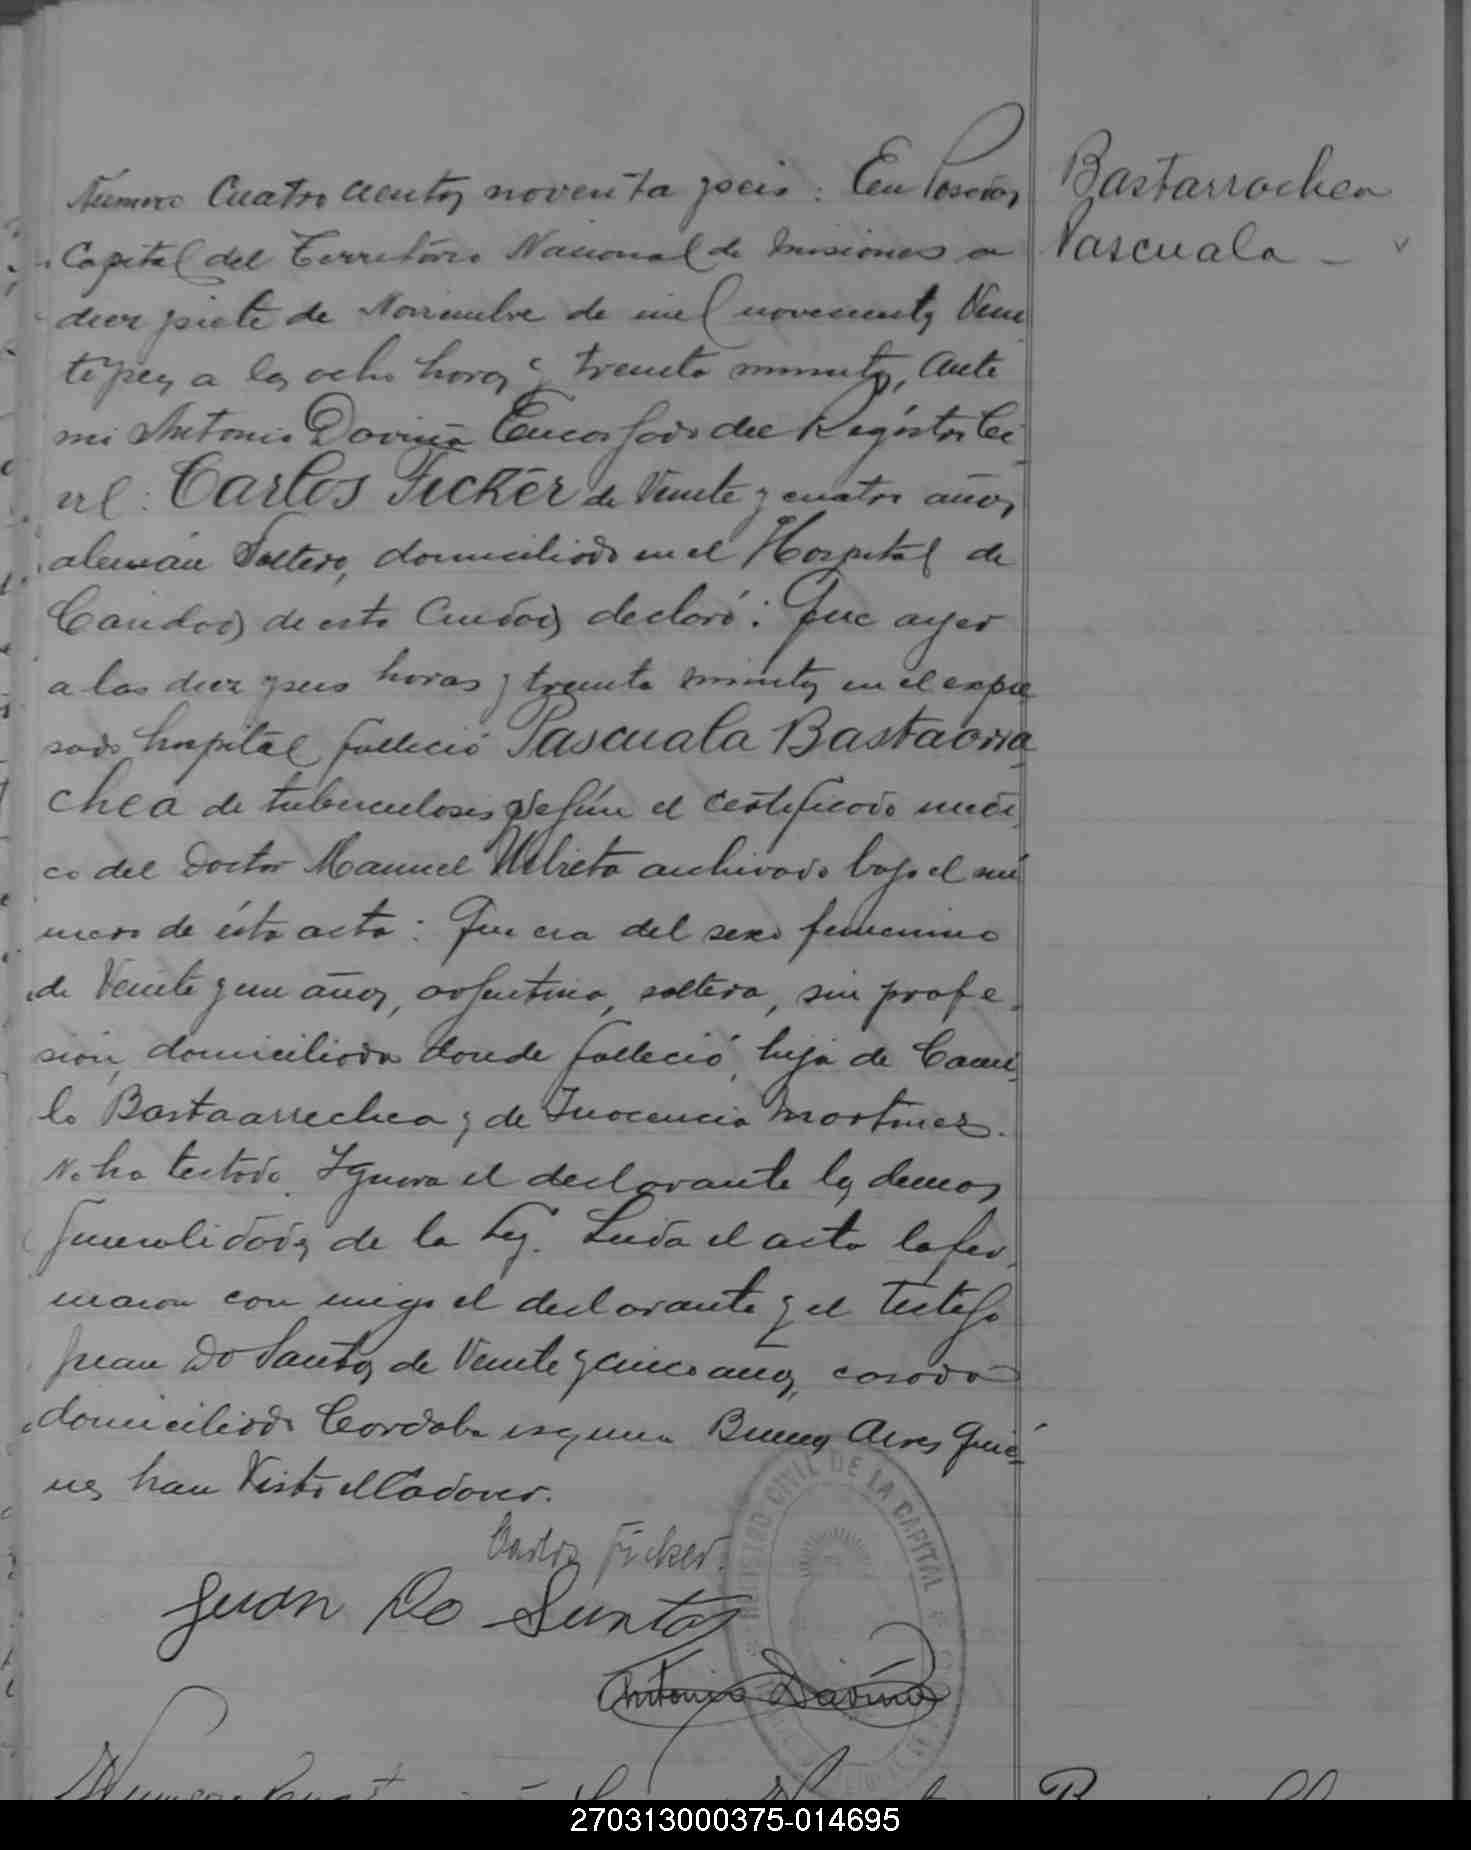 Número Cuatrocientos noventa y seis: En Posadas
Capital del Territorio Nacional de Misiones a
diez y siete de Noviembre de mil novecientos Vein
te y seis a las ocho horas y treinta minutos, Ante
mi Antonio Daviña Encargado del Registro Ci
vil: Carlos Ficker de Veinte y cuatro años
alemán Soltero, domiciliado en el Hospital de
Caridad de esta Ciudad declaró: Que ayer
a las diez y seis horas y treinta minutos en el expre
sado hospital falleció Pascuala Bastaarra
chea de tuberculosis según el certificado médi
co del Doctor Manuel archivado bajo el nú
mero de ésta acta: Que era del sexo femenino
de Veinte y un años, argentina, soltera, sin profe
sión, domiciliada donde falleció, hija de Cami
lo Bastaarrechea y de Inocencia Martinez.
No ha testado. Ignora el declarante las demas
generalidades de la Ley. Leida el acta la fir
maron con migo el declarante y el testigo
Juan Do Santos de Veinte y cinco años, casado
domiciliado Cordoba esquina Buenos Aires Quié
nes han Visto el Cadaver.
Carlos Ficker.
Juan Do Santos
Antonio Daviña
Bastarrachea
Pascuala -
REGISTRO CIVIL DE LA CAPITAL
Número
270313000375-014695